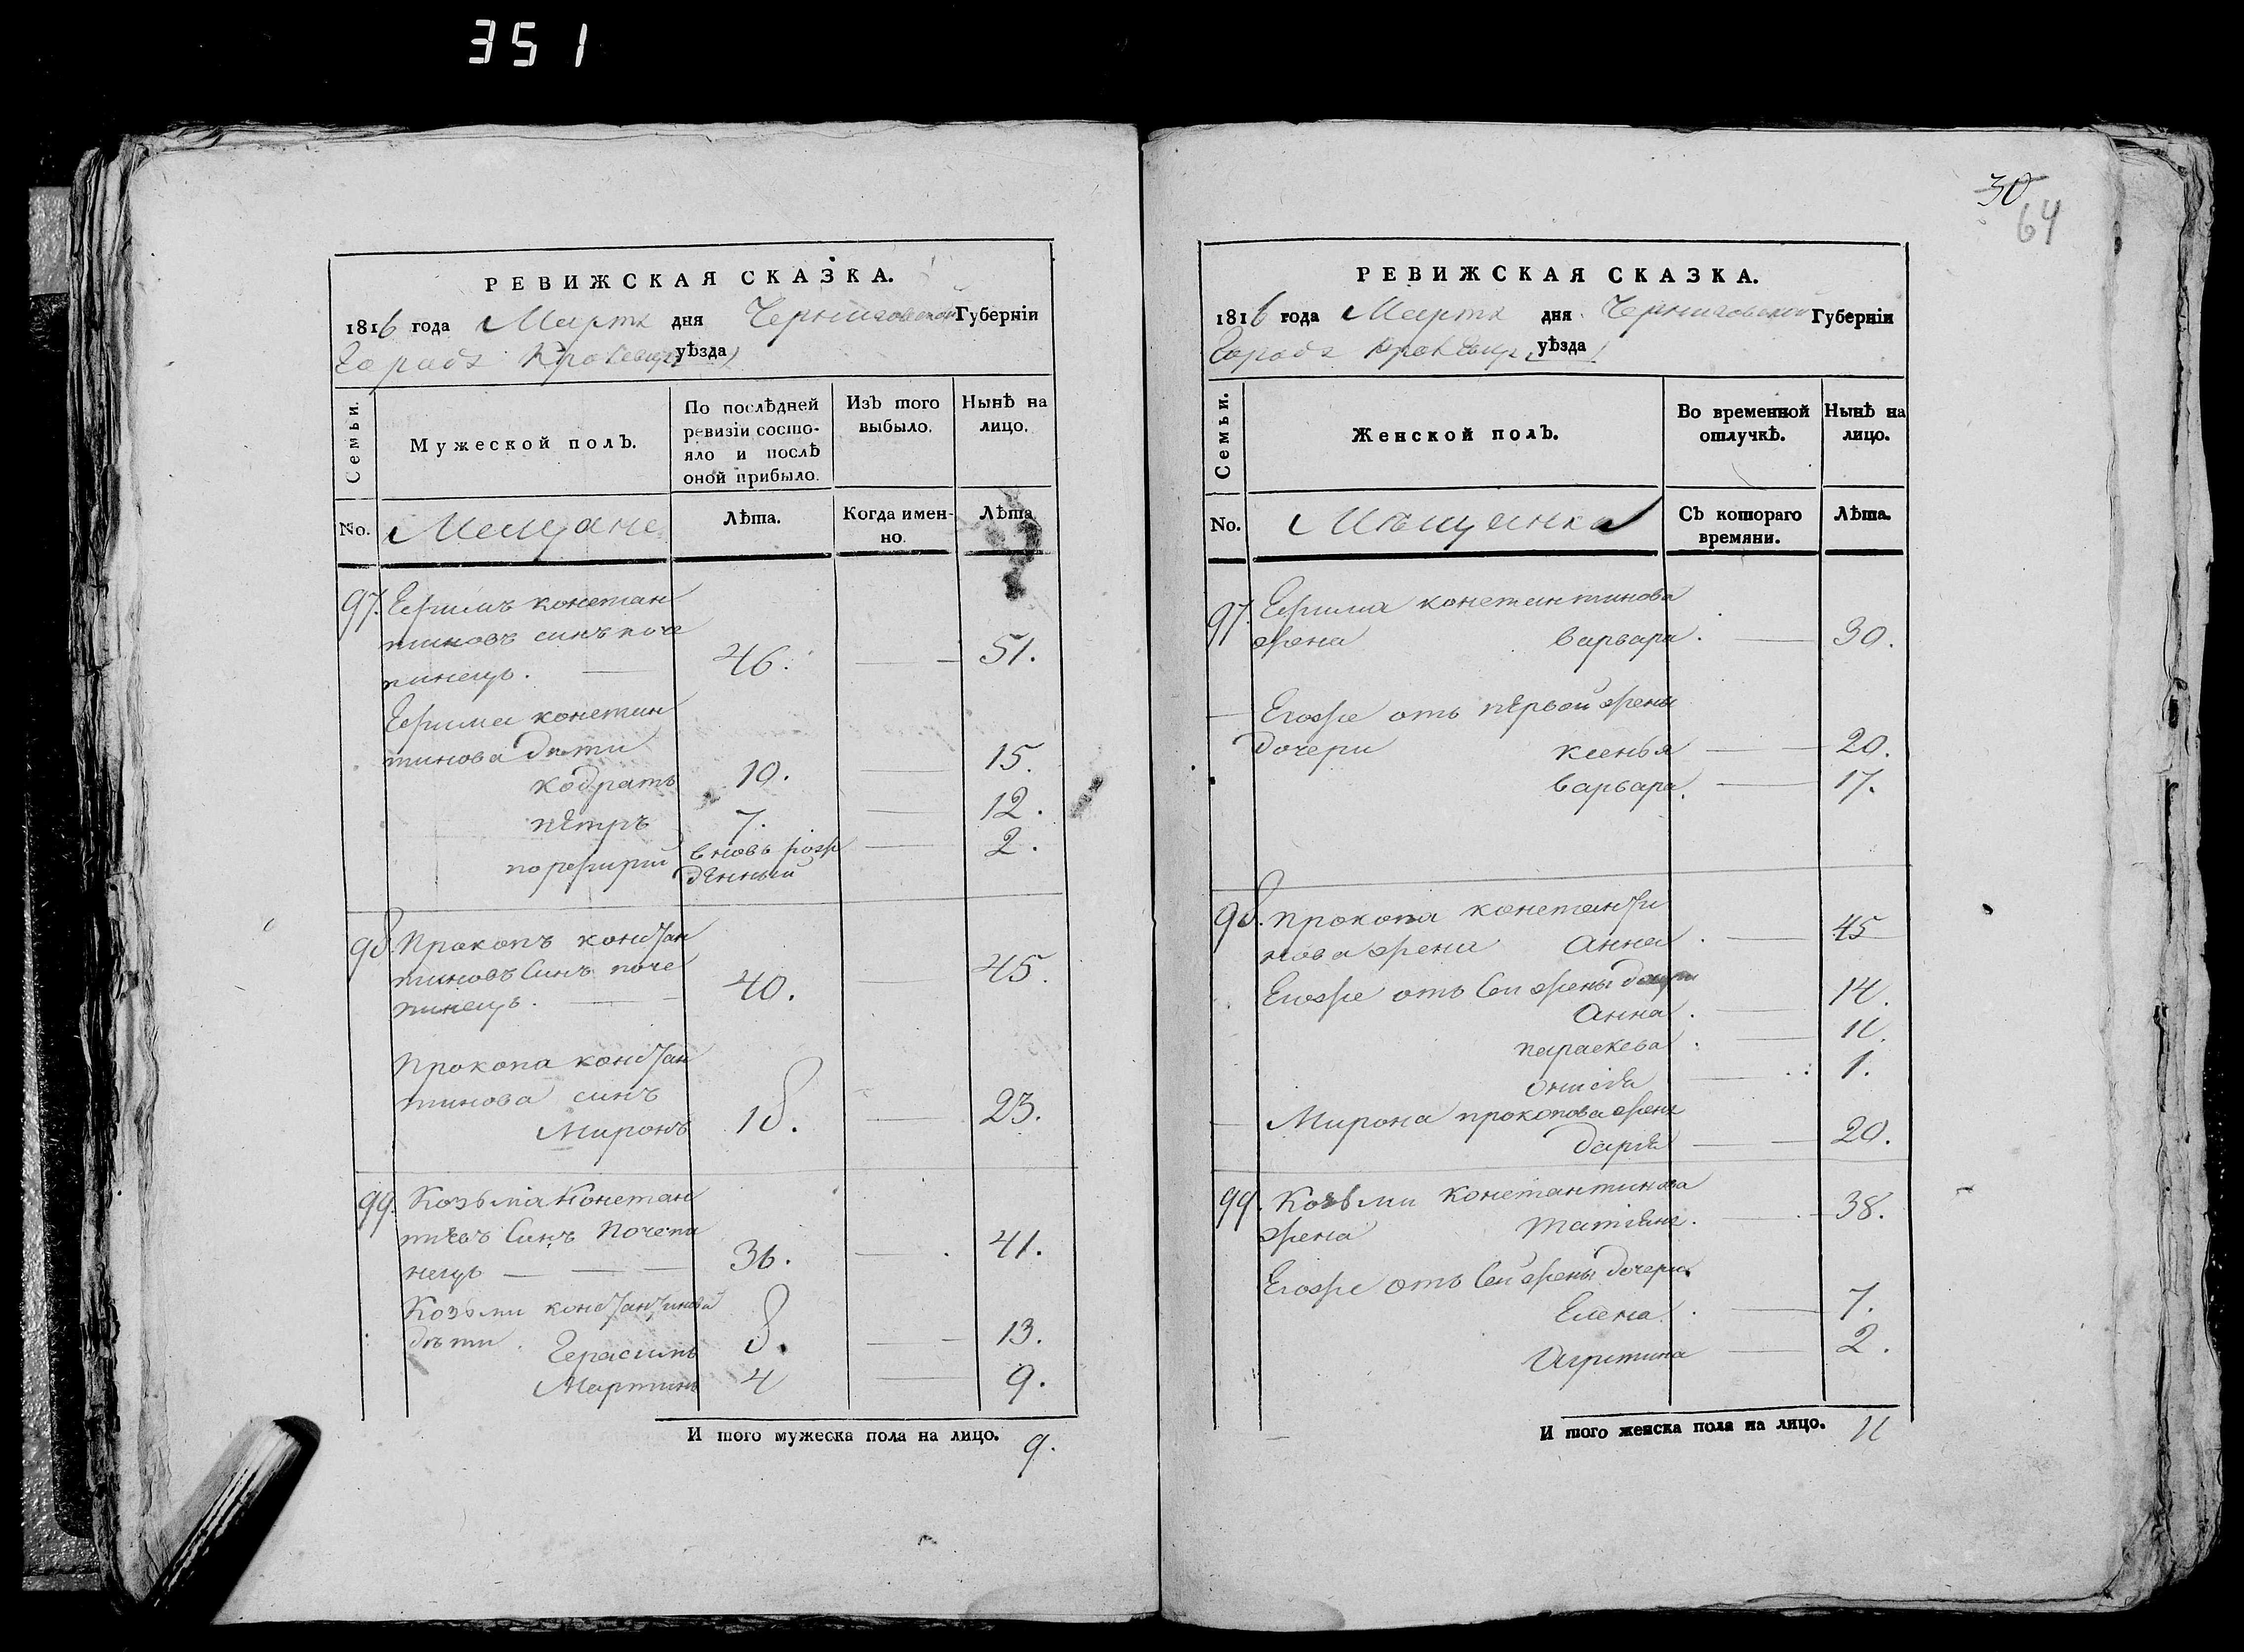 351
РЕВИЖСКАЯ СКАЗКА.
1816 года Марта дня Черниговской Губерніи
Города Кролевца уѣзда
Семьи.
Мужеской полъ.
По послѣдней ревизіи состо-
яло и послѣ
оной прибыло.
Изъ того
выбыло.
Нынѣ на
лицо.
No.
Мещане
Лѣта.
Когда имен-
но.
Лѣта
97. Ефимъ констан
тиновъ синъ поче
пинецъ. 46. 51.
Ефима констан
тинова дѣти
кодратъ 10. 15.
пЕтръ 7. 12.
порфирий вновь рож
дЕнный 2.
98. Прокопъ констан
тиновъ Синъ поче
пинецъ. 40. 45.
Прокопа констан
тинова синъ
Миронъ 18. 23.
99. Козьма Констан
тиновъ Синъ Почепи
нецъ 36. 41.
Козьми константинова
дѣти. Герасимъ 8. 13.
Мартинъ 4 9.
И того мужеска пола на лицо. 9.
30
64
РЕВИЖСКАЯ СКАЗКА.
1816 года Марта дня Черниговской Губерніи
Города Кролевца уѣзда
Семьи.
Женской полъ.
Во временной
отлучкѣ.
Нынѣ на
лицо.
No.
Мещанки
Съ котораго
времяни.
Лѣта.
97. Ефима константинова
жена варвара. 30.
Егожє отъ пЕрвой жены
дочери ксенья 20.
варвара. 17.
98. Прокопа константи
нова жена Анна. 45
Егоже отъ Сей жены дочери
Анна. 14.
параскева. 11.
1.
Мирона прокопова жена
дарья 20.
99. Козьми константинова
жена татіяна. 38.
Егоже отъ Сей жены дочери
Елена. 7.
2.
И того женска пола на лицо. 11